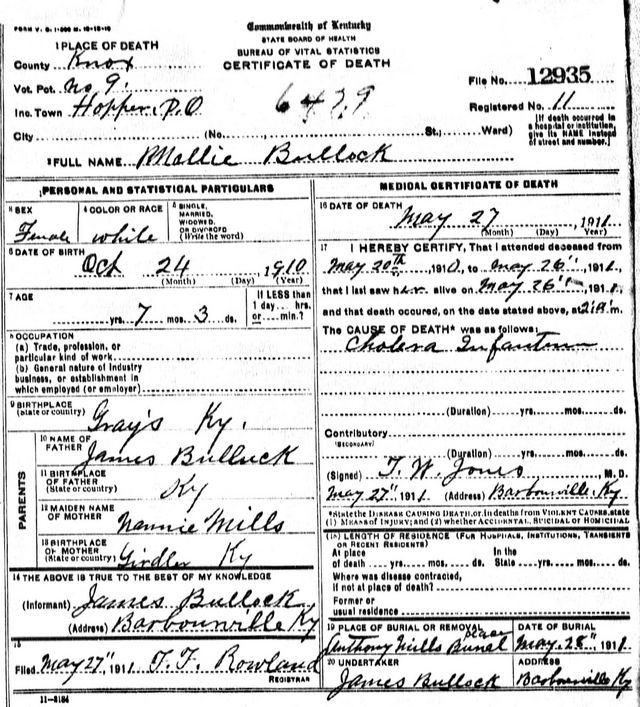 FORM V. S. 1-500 M. 12-12-10
Commonwealth of Kentucky
STATE BOARD OF HEALTH
BUREAU OF VITAL STATISTICS
CERTIFICATE OF DEATH
1 PLACE OF DEATH
County Knox
Vot. Pct. No 9.
Inc. Town Hopper, P.O
City (No. , St.; Ward)
File No. 12935
Registered No. 11
[If death occurred in a hospital or institution, give its NAME instead of street and number.]
2 FULL NAME Mallie Bullock
PERSONAL AND STATISTICAL PARTICULARS
3 SEX
Female
4 COLOR OR RACE
white
5 SINGLE, MARRIED, WIDOWED, OR DIVORCED (Write the word)
6 DATE OF BIRTH
Oct 24 1910
(Month) (Day) (Year)
7 AGE
yrs. 7 mos. 3 ds.
If LESS than 1 day.... hrs. or.... min.?
8 OCCUPATION
(a) Trade, profession, or particular kind of work
(b) General nature of Industry business, or establishment in which employed (or employer)
9 BIRTHPLACE (State or country) Gray's Ky.
PARENTS
10 NAME OF FATHER James Bulluck
11 BIRTHPLACE OF FATHER (State or country) Ky
12 MAIDEN NAME OF MOTHER Nannie Mills
13 BIRTHPLACE OF MOTHER (State or country) Girdler Ky
14 THE ABOVE IS TRUE TO THE BEST OF MY KNOWLEDGE
(Informant) James Bullock
(Address) Barbourville Ky
15
Filed May 27" 1911 T. F. Rowland
REGISTRAR
11-3184
MEDICAL CERTIFICATE OF DEATH
16 DATE OF DEATH
May 27 , 1911
(Month) (Day) (Year)
17 I HEREBY CERTIFY, That I attended deceased from
May 20th, 1911, to May 26", 1911,
that I last saw her alive on May 26", 1911,
and that death occured, on the date stated above, at 2 A m.
The CAUSE OF DEATH* was as follows:
Cholera Infantum
(Duration) yrs. mos. ds.
Contributory
(SECONDARY)
(Duration) yrs. mos. ds.
(Signed) T. W. Jones , M. D.
May 27", 1911 (Address) Barbourville, Ky
*State the DISEASE CAUSING DEATH, or, in deaths from VIOLENT CAUSES, state
(1) MEANS OF INJURY; and (2) whether ACCIDENTAL, SUICIDAL OR HOMICIDAL
18 LENGTH OF RESIDENCE (FOR HOSPITALS, INSTITUTIONS, TRANSIENTS OR RECENT RESIDENTS)
At place of death yrs. mos. ds. In the State yrs. mos. ds.
Where was disease contracted, if not at place of death?
Former or usual residence
19 PLACE OF BURIAL OR REMOVAL
Anthony Mills Burial place
DATE OF BURIAL
May 28" 1911
20 UNDERTAKER
James Bullock
ADDRESS
Barbourville Ky